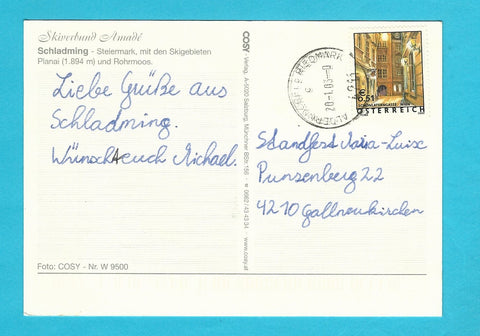 Skiverbund Amadé
Schladming - Steiermark, mit den Skigebieten
Planai (1.894 m) und Rohrmoos.
Liebe Grüße aus
Schladming.
Wünscht euch Michael.
Foto: COSY - Nr. W 9500
COSY - Verlag, A-5020 Salzburg, Münchner BStr. 156 · ☎ 0662/43 43 34 · www.cosy.at
€ 0,51
ÖSTERREICH
Standfest Maria-Luise
Punzenberg 22
4210 Gallneukirchen